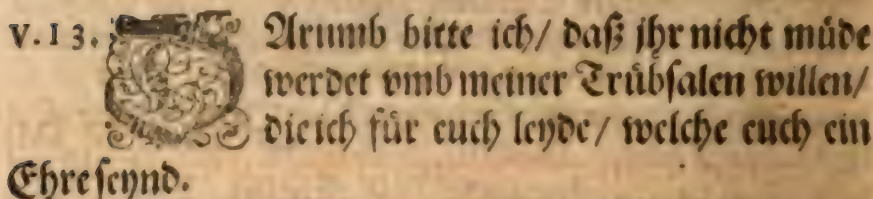 V. 13. DArumb bitte ich/ daß jhr nicht müde
werdet vmb meiner Trübsalen willen/
die ich für euch leyde/ welche euch ein
Ehre seynd.